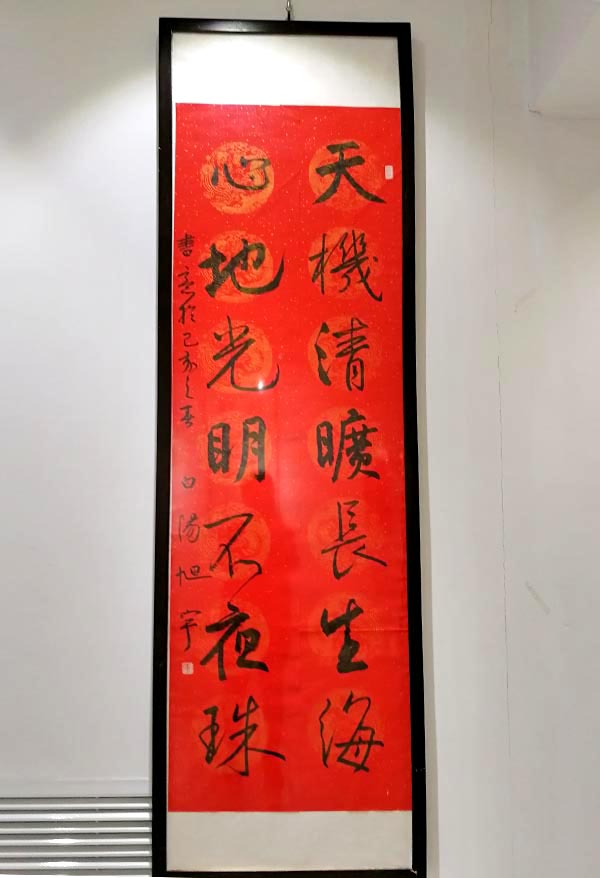 天機清曠長生海
心地光明不夜珠
書意於己亥之春 白湯旭宇